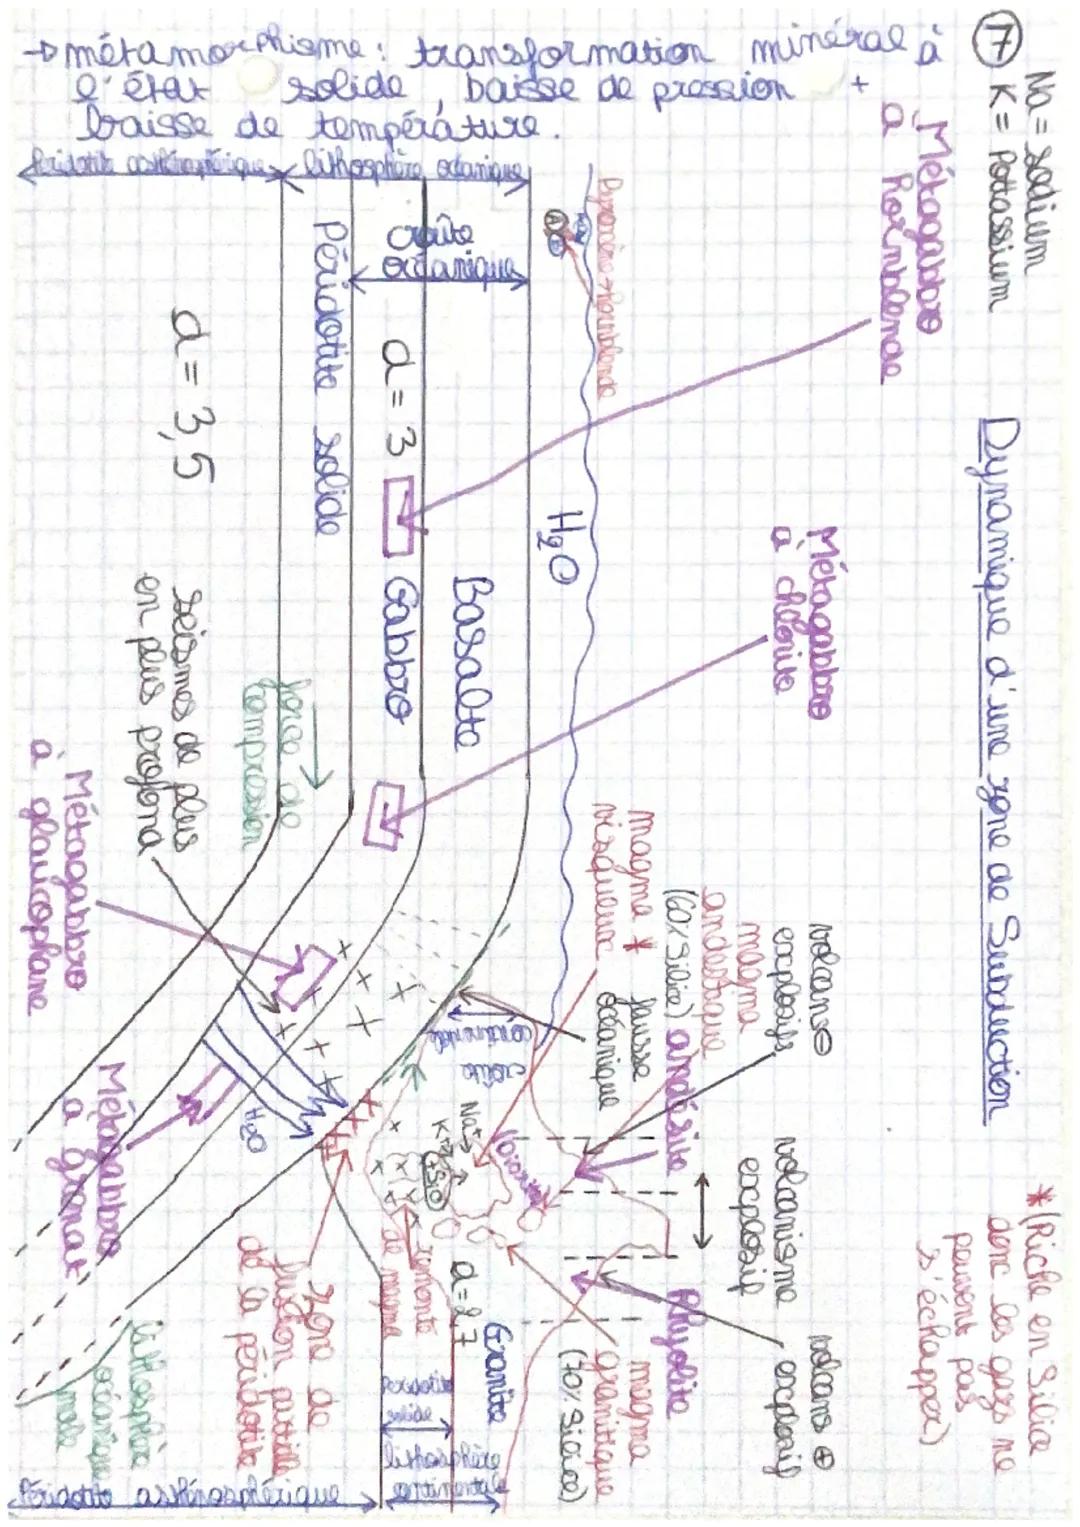 → métamorphisme: transformation minéral à
l'état solide, baisse de pression +
baisse de température.
⑦ Na = sodium
K = Pottassium
Dynamique d'une zone de Subduction
Métagabbro
à hornblende
Métagabbro
à chlorite
volcans ⊖
explosifs
volcanisme
explosif
volcans ⊕
explosif
* (Riche en Silice
donc les gazs ne
peuvent pas
s'échapper)
magma
andésitique
(60% Silice)
andésite
Rhyolite
magma *
visqueux
fausse
océanique
magma
granitique
(70% Silice)
Pyroxène + hornblende
H₂O
Péridotite asthénosphérique
lithosphère océanique
croûte
océanique
Basalte
d = 3
Gabbro
Péridotite solide
d = 3,5
force de
compression
séismes de plus
en plus profond
Métagabbro
à glaucophane
Métagabbro
à grenat
H₂O
croûte
continentale
Na+
K+
Diorite
remonté
de magma
d = 2,7
Granite
lithosphère
continentale
zone de
fusion partielle
de la péridotite
lithosphère
océanique
Péridotite asthénosphérique